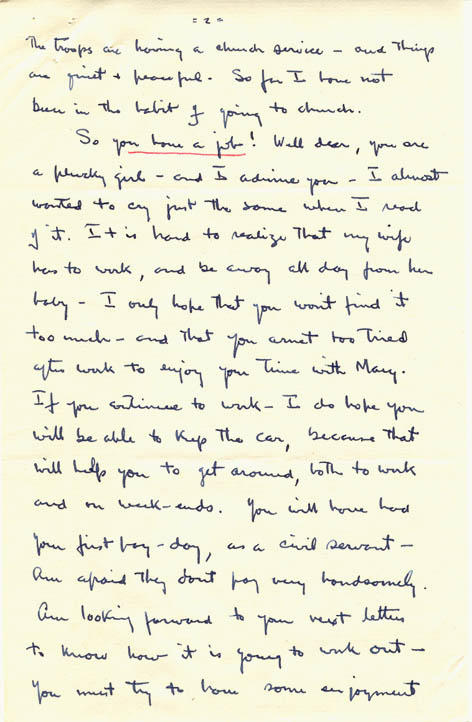 = 2 =
The troops are having a church service - and things
are quiet + peaceful. So far I have not
been in the habit of going to church.
So you have a job! Well dear, you are
a plucky girl - and I admire you - I almost
wanted to cry just the same when I read
of it. It is hard to realize that my wife
has to work, and be away all day from her
baby - I only hope that you won't find it
too much - and that you arnet too tired
after work to enjoy your time with Mary.
If you continue to work - I do hope you
will be able to keep the car, because that
will help you to get around, both to work
and on week-ends. You will have had
your first pay-day, as a civil servant -
Am afraid they don't pay very handsomely.
Am looking forward to your next letter
to know how it is going to work out -
You must try to have some enjoyment